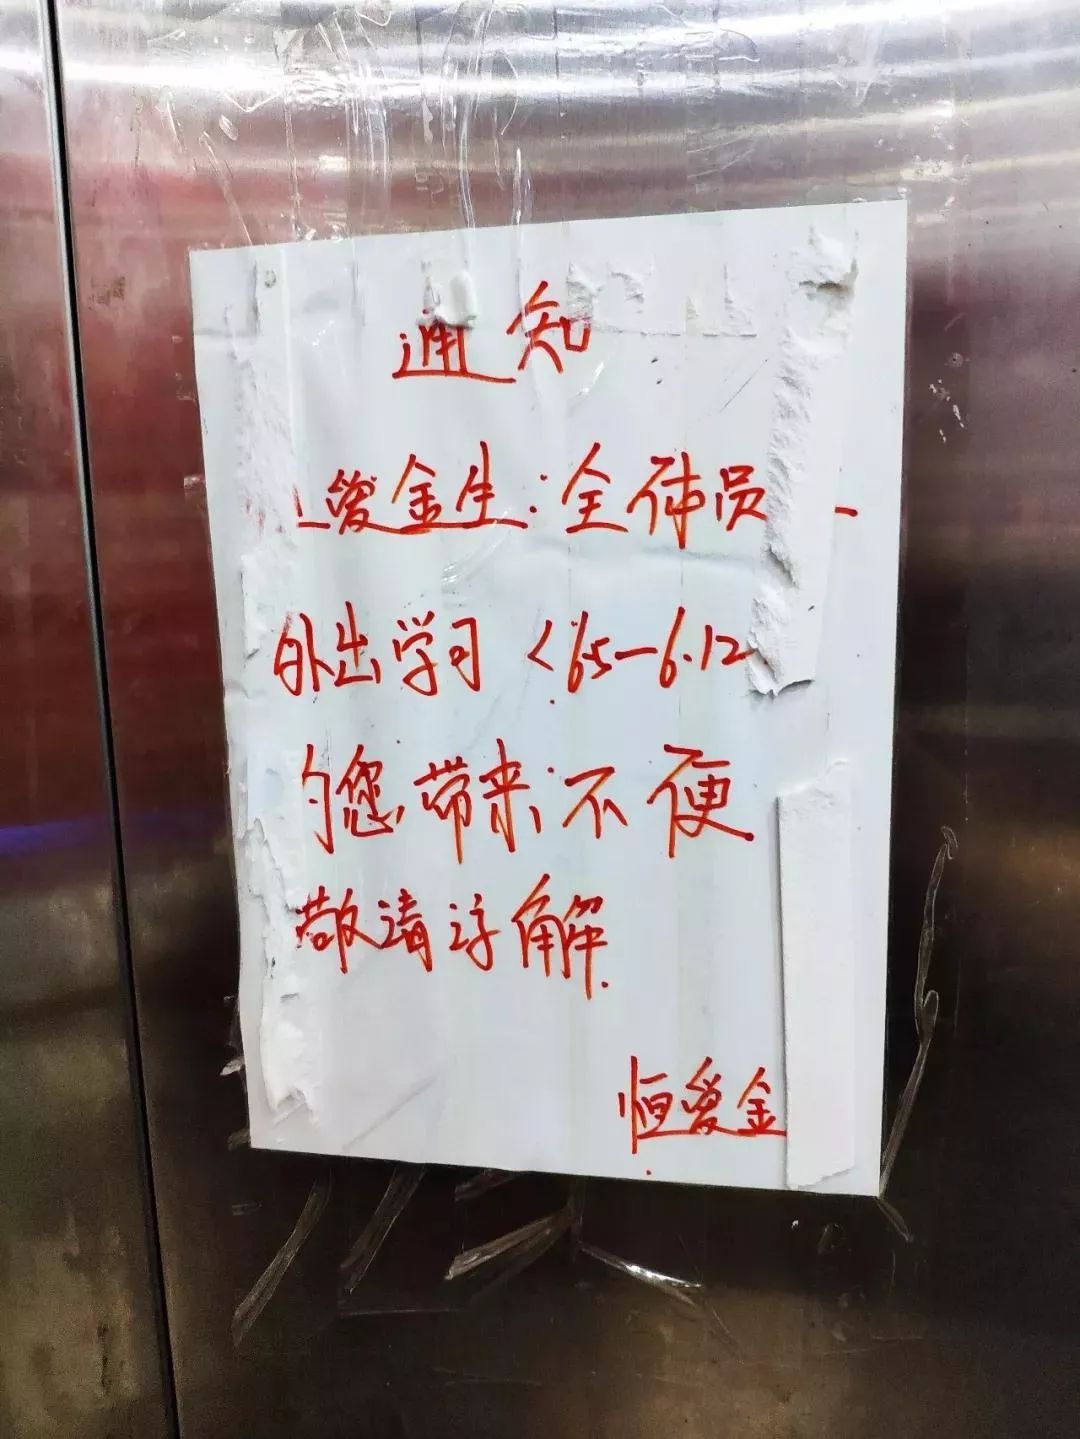 通知
爱金生:全体员
外出学习<6.5-6.12
的您带来不便
敬请谅解.
恒爱金